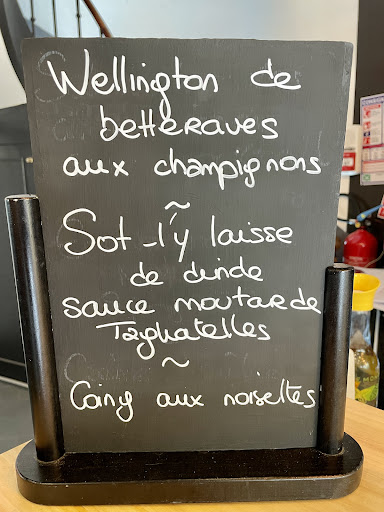 Wellington de
betteraves
aux champignons
~
Sot-l'y laisse
de dinde
sauce moutarde
Tagliatelles
~
aux noisettes